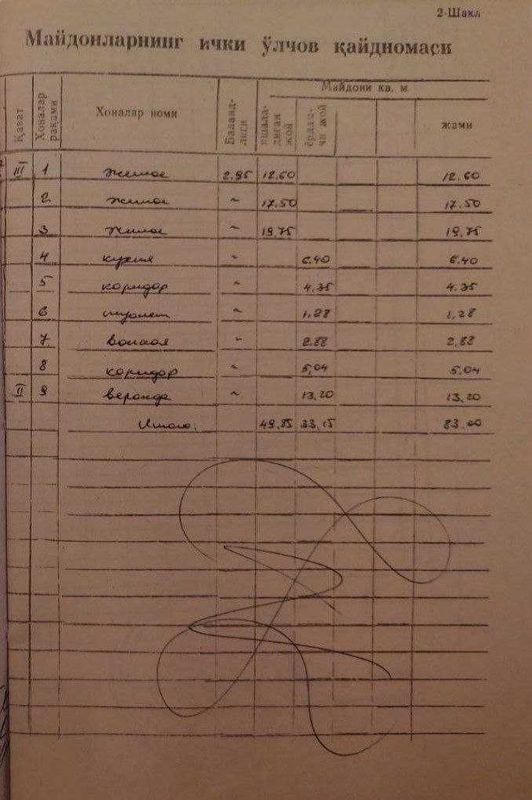 2-Шакл
Майдонларнинг ички ўлчов қайдномаси
Қават Хоналар рақами Хоналар номи Баландлиги Майдони кв. м
яшаладиган жой ёрдамчи жой жами
III 1 жилое 2.95 12.60 12.60
2 жилое " 17.50 17.50
3 жилое " 19.75 19.75
4 кухня " 6.40 6.40
5 коридор " 4.35 4.35
6 туалет " 1.28 1.28
7 ванная " 2.88 2.88
8 коридор " 5.04 5.04
II 9 веранда " 13.20 13.20
Итого: 49.85 33.15 83.00